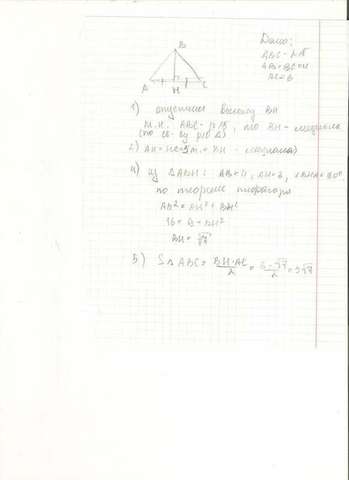 Дано:
ABC - р/б
AB=BC=4
AC=6
B
A H C
1) опустим высоту BH
т.к. ABC - р/б, то BH - медиана
(по св-ву р/б Δ)
2) AH=HC=3 (т.к. BH - медиана)
4) из ΔABH: AB=4, AH=3,
по теореме Пифагора
AB² = AH² + BH²
16 = 9 + BH²
BH = √7
5) S Δ ABC = BH·AC / 2 = 6·√7 / 2 = 3√7